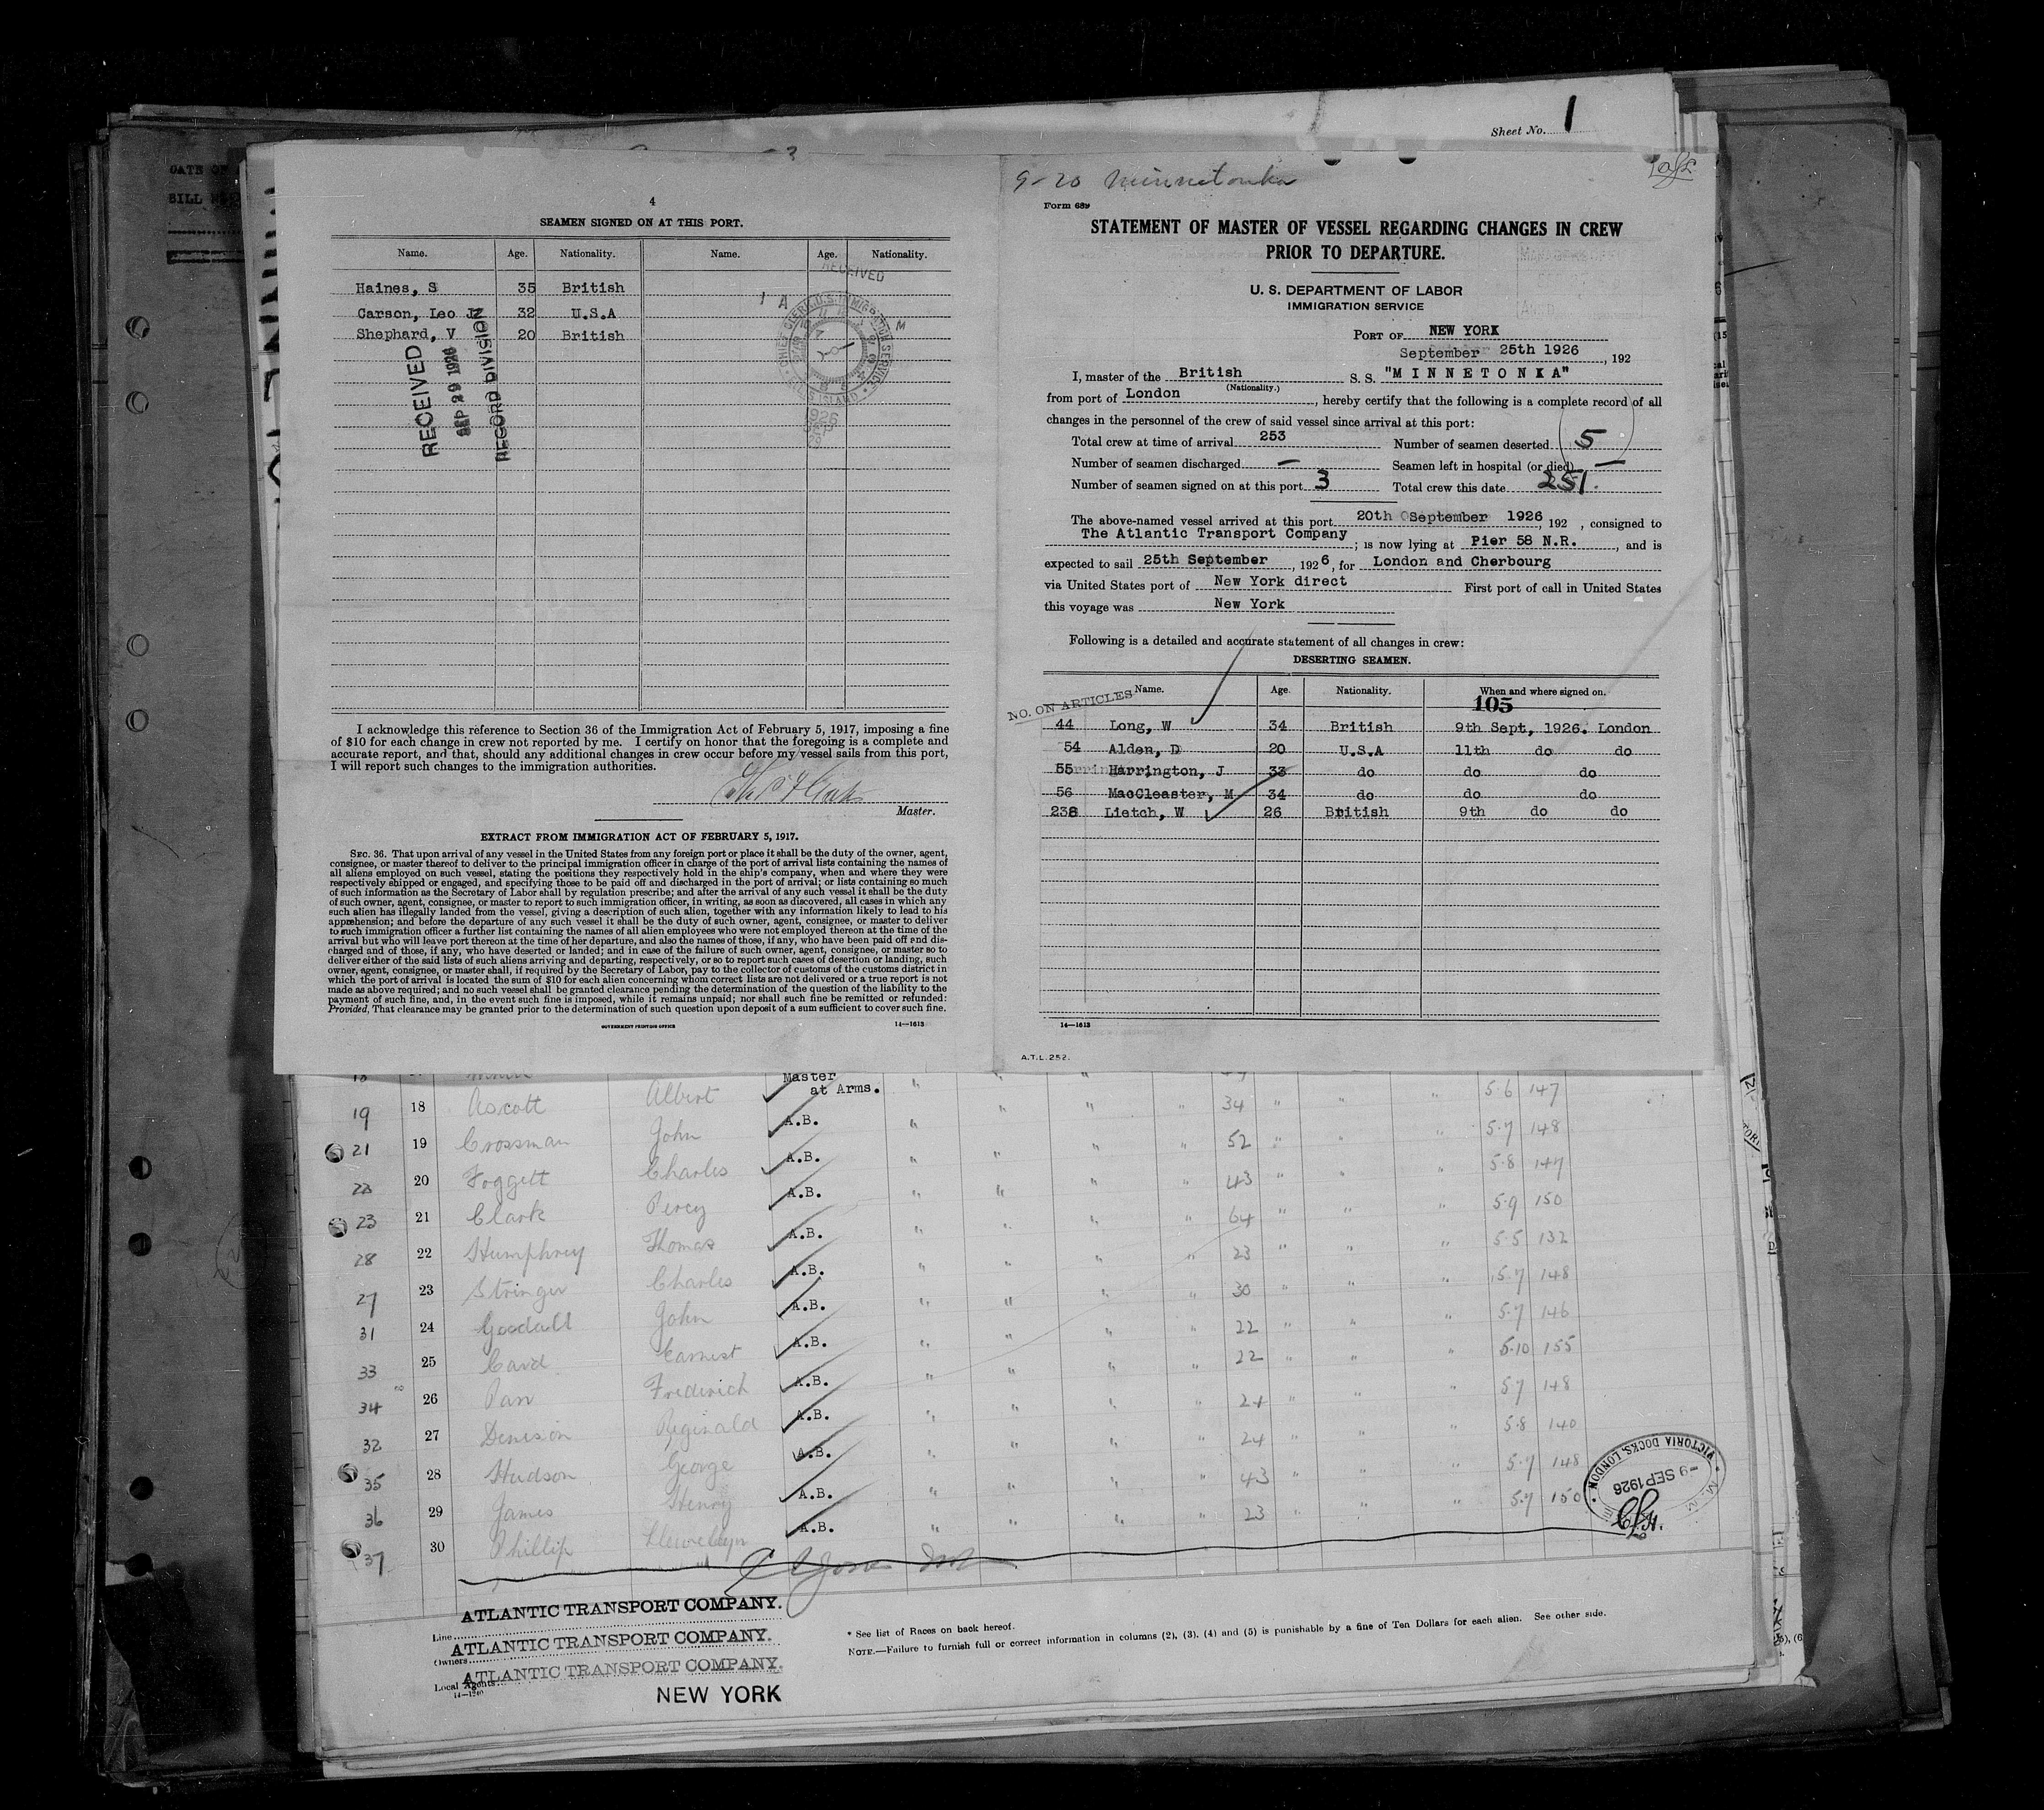 Sheet No. 1
4
SEAMEN SIGNED ON AT THIS PORT.
Name. Age. Nationality. Name. Age. Nationality.
Haines, S 35 British
Carson, Leo J. 32 U.S.A
Shephard, V 20 British
RECEIVED
SEP 29 1926
RECORD DIVISION
RECEIVED
1926
I acknowledge this reference to Section 36 of the Immigration Act of February 5, 1917, imposing a fine
of $10 for each change in crew not reported by me. I certify on honor that the foregoing is a complete and
accurate report, and that, should any additional changes in crew occur before my vessel sails from this port,
I will report such changes to the immigration authorities.
Master.
EXTRACT FROM IMMIGRATION ACT OF FEBRUARY 5, 1917.
SEC. 36. That upon arrival of any vessel in the United States from any foreign port or place it shall be the duty of the owner, agent,
consignee, or master thereof to deliver to the principal immigration officer in charge of the port of arrival lists containing the names of
all aliens employed on such vessel, stating the positions they respectively hold in the ship's company, when and where they were
respectively shipped or engaged, and specifying those to be paid off and discharged in the port of arrival; or lists containing so much
of such information as the Secretary of Labor shall by regulation prescribe; and after the arrival of any such vessel it shall be the duty
of such owner, agent, consignee, or master to report to such immigration officer, in writing, as soon as discovered, all cases in which any
such alien has illegally landed from the vessel, giving a description of such alien, together with any information likely to lead to his
apprehension; and before the departure of any such vessel it shall be the duty of such owner, agent, consignee, or master to deliver
to such immigration officer a further list containing the names of all alien employees who were not employed thereon at the time of the
arrival but who will leave port thereon at the time of her departure, and also the names of those, if any, who have been paid off and dis-
charged and of those, if any, who have deserted or landed; and in case of the failure of such owner, agent, consignee, or master so to
deliver either of the said lists of such aliens arriving and departing, respectively, or so to report such cases of desertion or landing, such
owner, agent, consignee, or master shall, if required by the Secretary of Labor, pay to the collector of customs of the customs district in
which the port of arrival is located the sum of $10 for each alien concerning whom correct lists are not delivered or a true report is not
made as above required; and no such vessel shall be granted clearance pending the determination of the question of the liability to the
payment of such fine, and, in the event such fine is imposed, while it remains unpaid; nor shall such fine be remitted or refunded:
Provided, That clearance may be granted prior to the determination of such question upon deposit of a sum sufficient to cover such fine.
GOVERNMENT PRINTING OFFICE 14—1613
9-20 Minnetonka
Form 689
STATEMENT OF MASTER OF VESSEL REGARDING CHANGES IN CREW
PRIOR TO DEPARTURE.
U. S. DEPARTMENT OF LABOR
IMMIGRATION SERVICE
PORT OF NEW YORK
September 25th 1926, 192
I, master of the British S. S. "MINNETONKA"
(Nationality.)
from port of London, hereby certify that the following is a complete record of all
changes in the personnel of the crew of said vessel since arrival at this port:
Total crew at time of arrival 253 Number of seamen deserted 5
Number of seamen discharged — Seamen left in hospital (or died) —
Number of seamen signed on at this port 3 Total crew this date 251.
The above-named vessel arrived at this port 20th September 1926, 192 , consigned to
The Atlantic Transport Company; is now lying at Pier 58 N.R., and is
expected to sail 25th September, 1926, for London and Cherbourg
via United States port of New York direct First port of call in United States
this voyage was New York
Following is a detailed and accurate statement of all changes in crew:
DESERTING SEAMEN.
NO. ON ARTICLES Name. Age. Nationality. When and where signed on.
105
44 Long, W 34 British 9th Sept, 1926. London
54 Alden, D 20 U.S.A 11th do do
55 Harrington, J 33 do do do
56 MacCleaster, M 34 do do do
238 Lietch, W 26 British 9th do do
14—1613
A.T.L. 252.
Master
at Arms.
19 18 Ascott Albert A.B. 34 5.6 147
21 19 Crossman John A.B. 52 5.7 148
22 20 Foggett Charles A.B. 43 5.8 147
23 21 Clark Percy A.B. 64 5.9 150
28 22 Humphrey Thomas A.B. 23 5.5 132
27 23 Stringer Charles A.B. 30 5.7 148
31 24 Goodall John A.B. 22 5.7 146
33 25 Card Earnest A.B. 22 5.10 155
34 26 Parr Frederick A.B. 24 5.7 148
32 27 Denison Reginald A.B. 24 5.8 140
35 28 Hudson George A.B. 43 5.7 148
36 29 James Henry A.B. 23 5.7 150
37 30 Phillip Llewellyn
VICTORIA DOCKS, LONDON
-9 SEP 1926
Line ATLANTIC TRANSPORT COMPANY.
Owners ATLANTIC TRANSPORT COMPANY.
Local Agents ATLANTIC TRANSPORT COMPANY.
14—1240
NEW YORK
* See list of Races on back hereof.
NOTE.—Failure to furnish full or correct information in columns (2), (3), (4) and (5) is punishable by a fine of Ten Dollars for each alien. See other side.